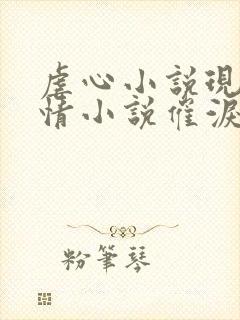 虐心小説現
情小説催淚
粉筆琴